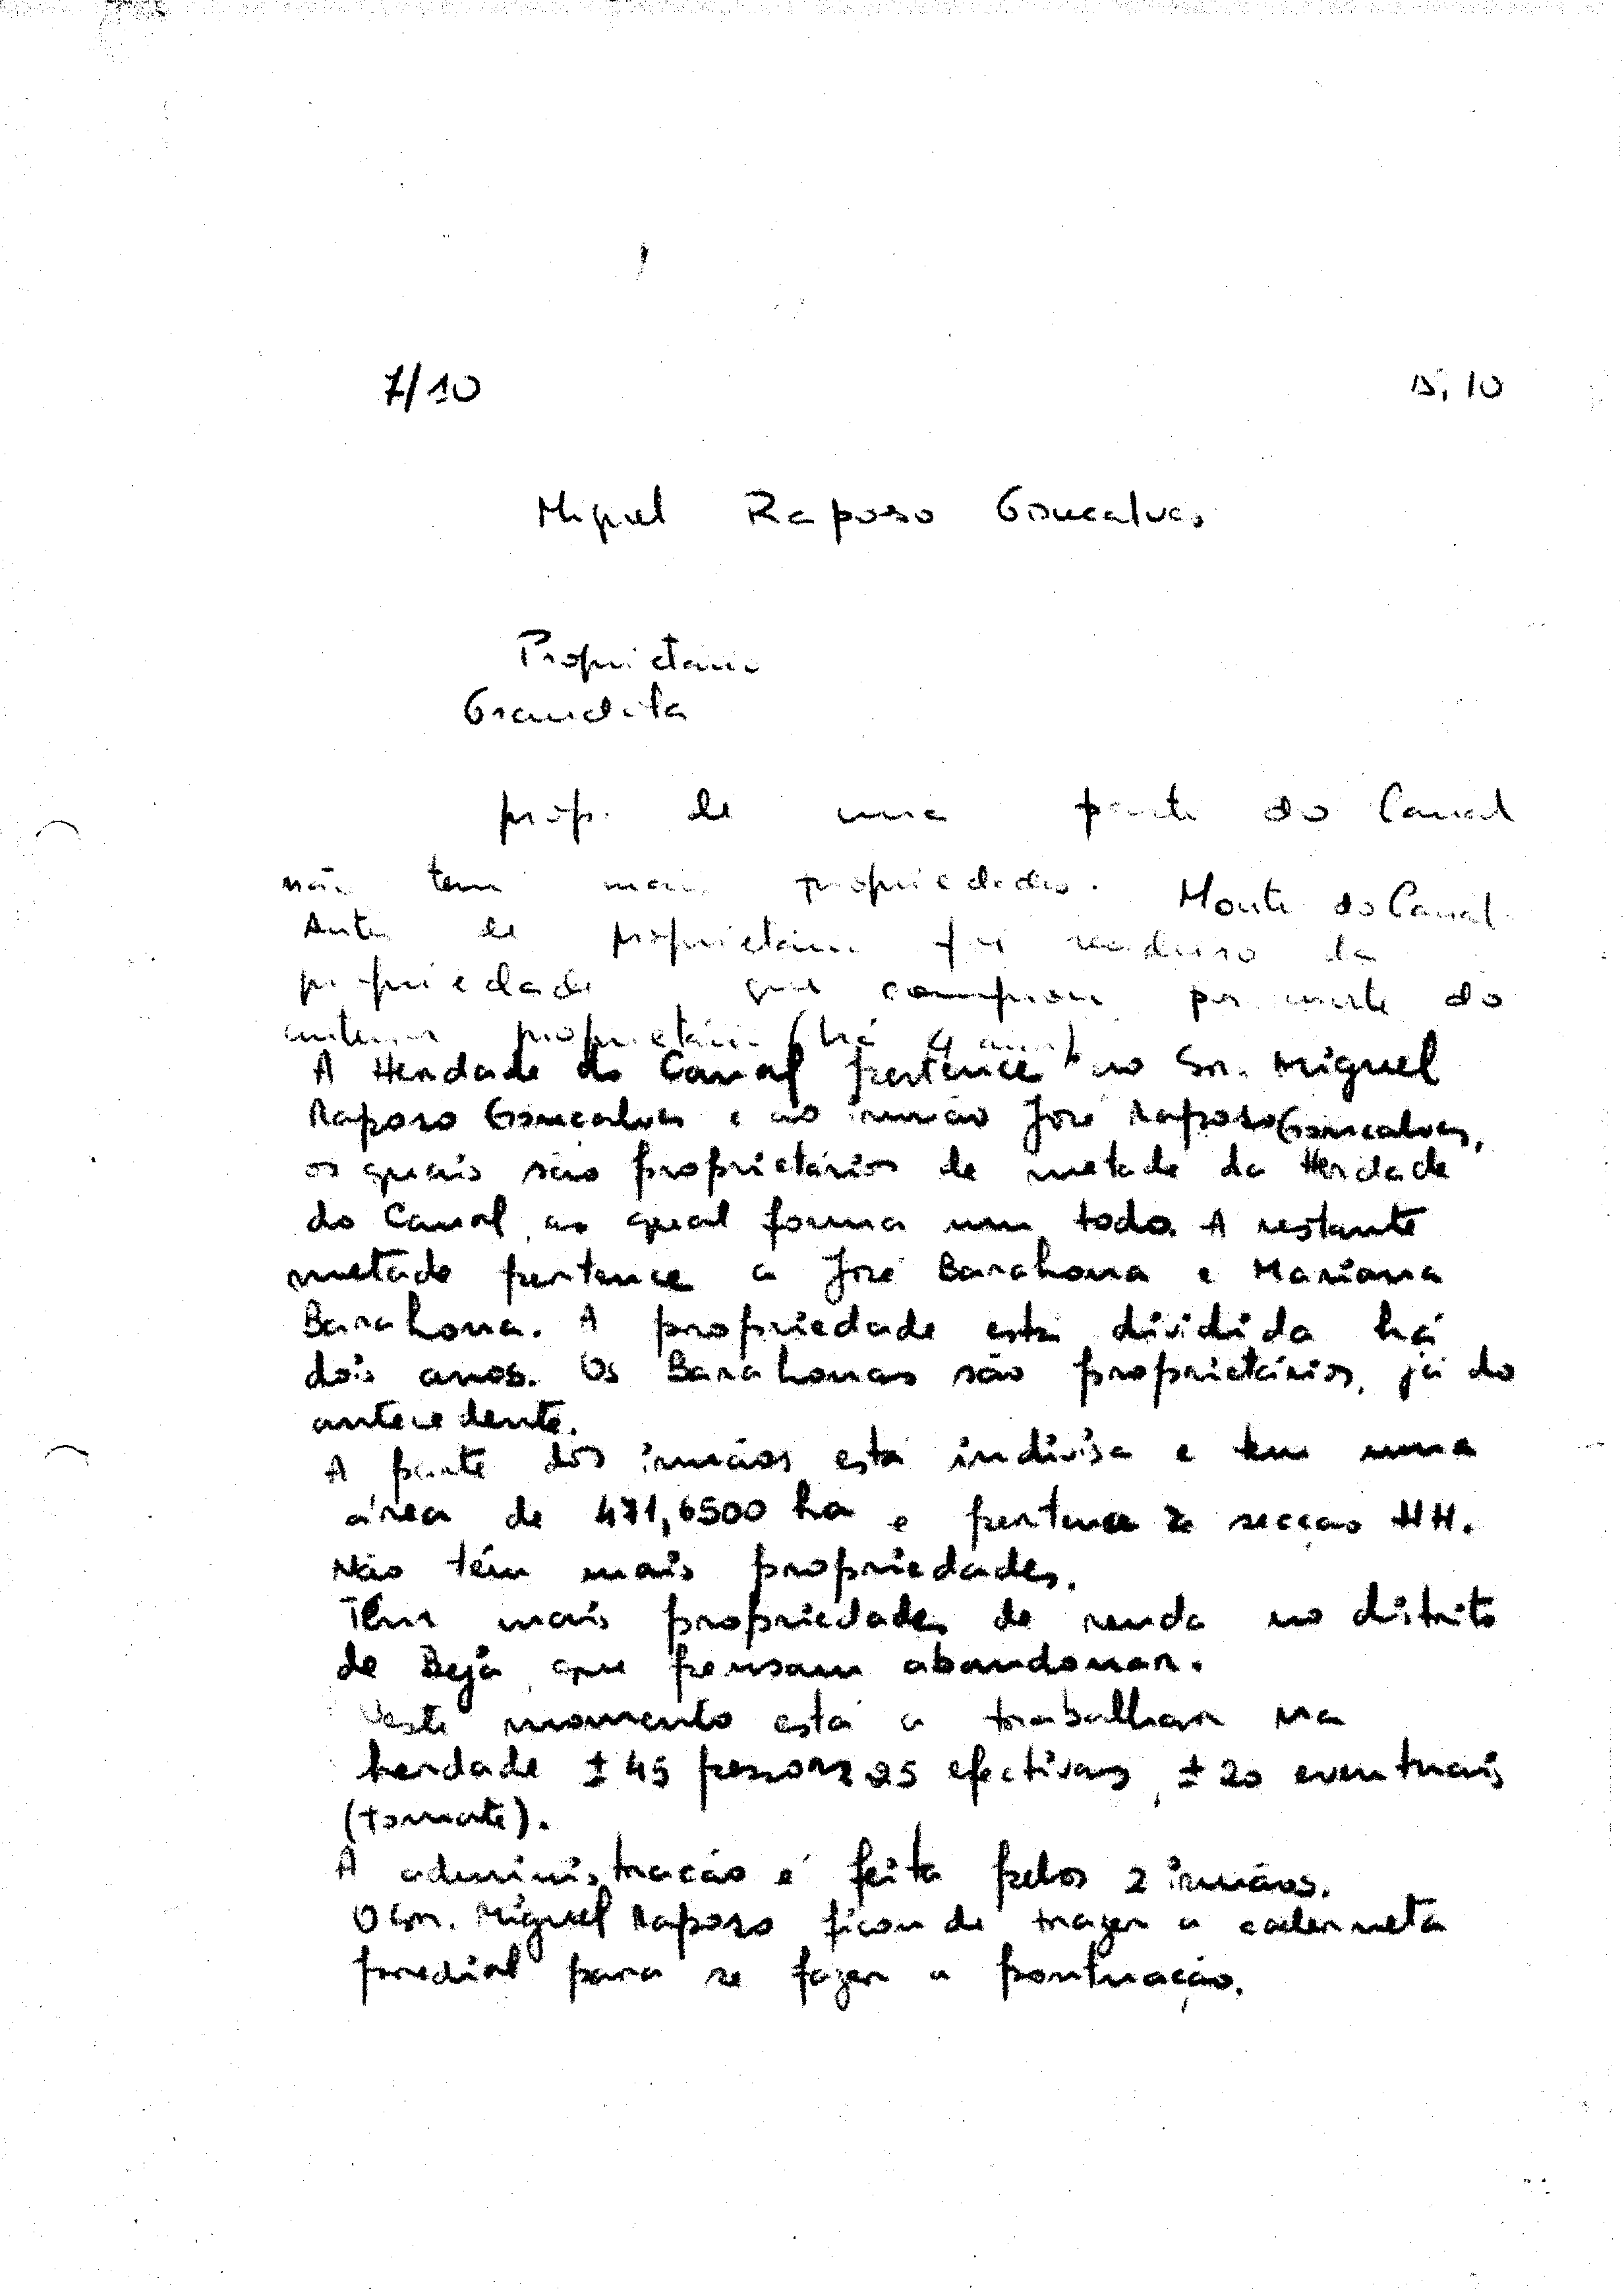 7/10
15,10
Miguel Raposo Goncalves
Proprietario
Grandita
prop. de uma parte do Canal
não tem mais propriedades. Monte do Canal
Antes de proprietário foi rendeiro da
propriedade que comprou por morte do
anterior proprietário (há 4 anos)
A Herdade do Canal pertence ao Sr. Miguel
Raposo Goncalves e ao irmão José Raposo Goncalves,
os quais são proprietários de metade da Herdade
do Canal, ao qual forma um todo. A restante
metade pertence a José Barahona e Mariana
Barahona. A propriedade está dividida há
dois anos. Os Barahonas são proprietários, já do
antecedente.
A parte dos irmãos está indivisa e tem uma
área de 471,6500 ha e pertence à secçao HH.
Não têm mais propriedades.
Têm mais propriedades de renda no distrito
de Beja, que pensam abandonar.
Neste momento está a trabalhar na
herdade ± 45 pessoas 25 efectivas, ± 20 eventuais
(tomate).
A administracão é feita pelos 2 irmãos.
O Sr. Miguel Raposo ficou de trazer a caderneta
predial para se fazer a pontuação.